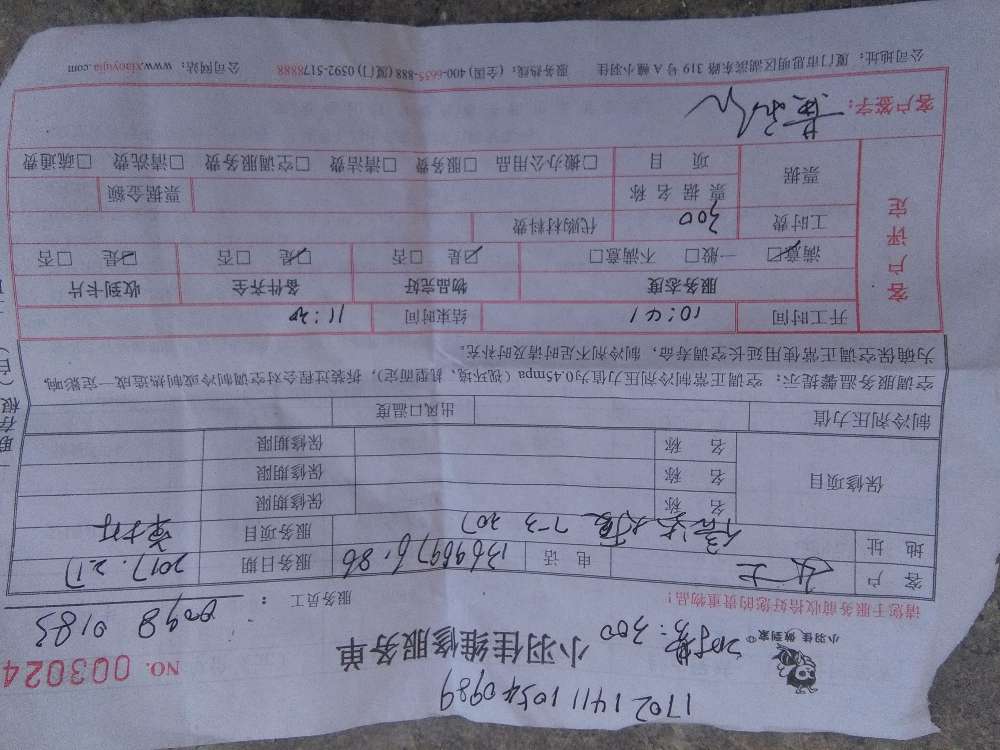 1702 1411 1054 0989
小羽佳 做到家
小羽佳维修服务单
NO. 003024
: 300
请您于服务前收拾好您的贵重物品!
服务员工: 0098 0183
客户 女士 电话 服务日期 2017.2.17
地址 7-3 207 服务项目
保修项目 名称 保修期限
名称 保修期限
名称 保修期限
制冷剂压力值 出风口温度
空调服务温馨提示: 空调正常制冷剂压力值为0.45mpa (视环境、机型而定), 拆装过程会对空调制冷或制热造成一定影响,
为确保空调正常使用延长空调寿命, 制冷剂不足时请及时补充。
客户评定
开工时间 10:41 结束时间 11:20
服务态度 物品完好 备件齐全 收到卡片
满意☑ 一般□ 不满意□ ☑是 □否 ☑是 □否 ☑是 □否
工时费 300 代购材料费
票据 票据名称 票据金额
项目 □搬办公用品 □服务费 □清洁费 □空调服务费 □清洗费 □疏通费
客户签字:
公司地址: 厦门市思明区湖滨东路 319 号 A 幢小羽佳 服务热线: (全国) 400-6655-888 (厦门) 0592-5178888 公司网站: www.xiaoyujia.com